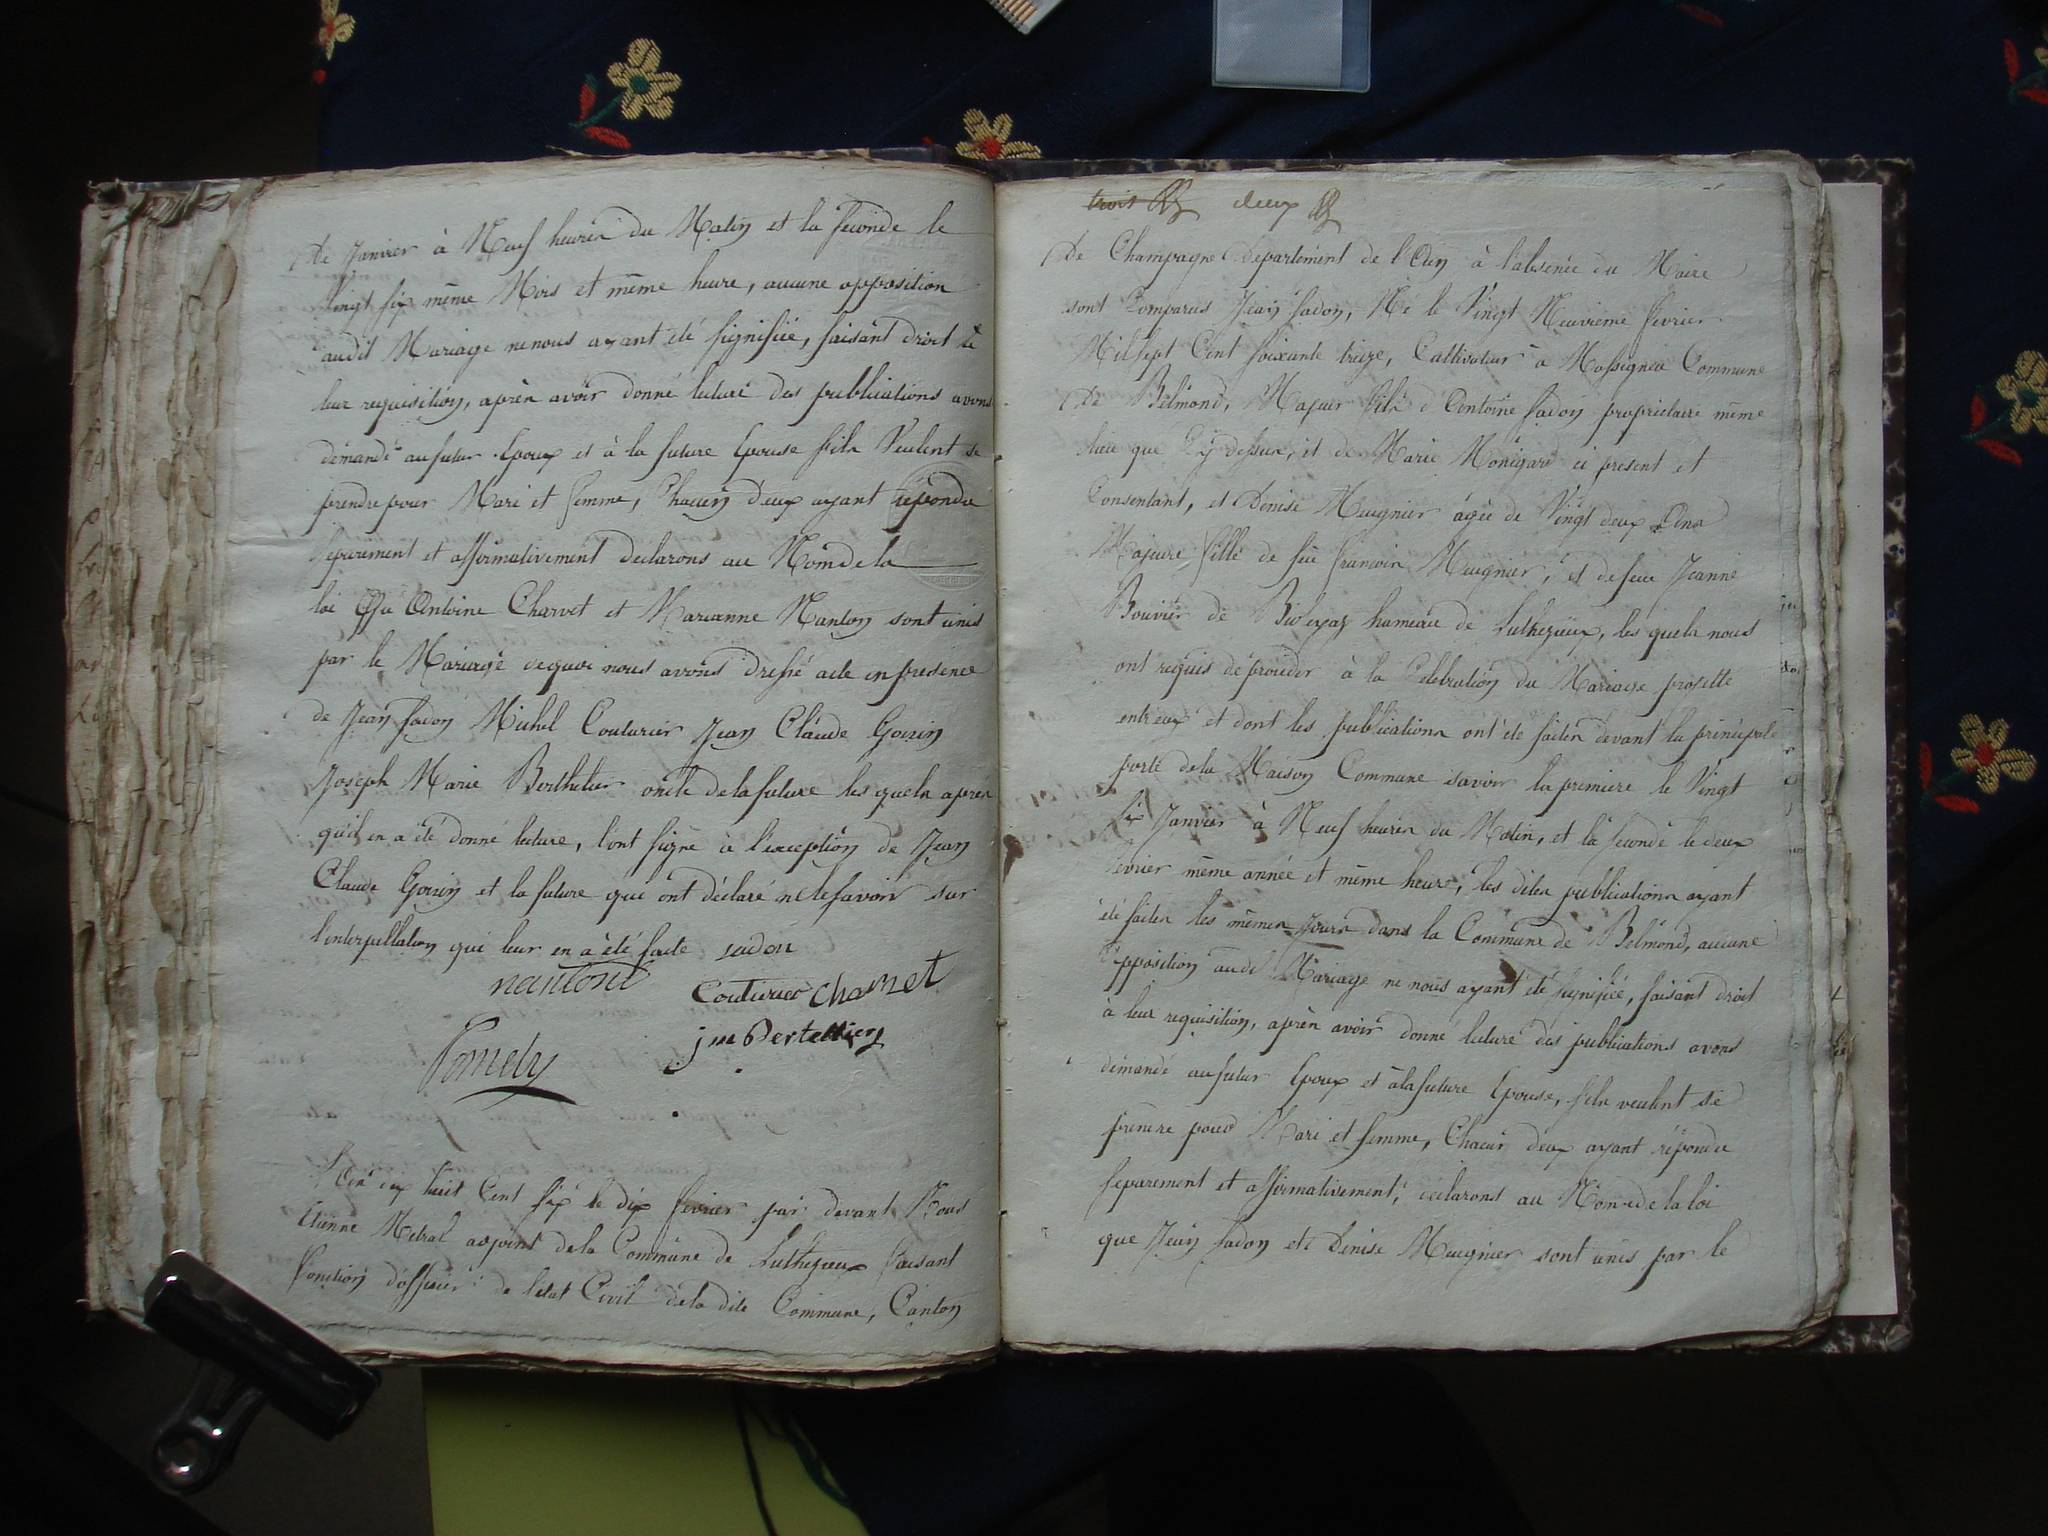 De Janvier à Neuf heures du Matin et la seconde le
vingt six même Mois et même heure, aucune opposition
audit Mariage ne nous ayant été signifiée, faisant droit à
leur requisition, après avoir donné lecture des publications avons
demandé au futur Epoux et à la future Epouse s'ils Veulent se
prendre pour Mari et femme, Chacun d'eux ayant repondu
séparément et affirmativement déclarons au Nom de la
loi Que Antoine Charvet et Marianne Nanton sont unis
par le Mariage de quoi nous avons dressé acte en presence
de Jean Sadon Michel Couturier Jean Claude Goirin
Joseph Marie Berthelier oncle de la future les quels après
qu'il en a été donné lecture, l'ont signé à l'exception de Jean
Claude Goirin et la future qui ont déclaré ne le savoir sur
l'interpellation qui leur en a été faite sadon
nantond Couturier Charvet
j m Bertellier
L'an dix huit Cent six le dix fevrier par devant Nous
Etienne Metral adjoint de la Commune de Luthezieux faisant
fonction d'officier de l'etat Civil de la dite Commune, Canton
trois deux
De Champagne Departement de l'Ain à l'absence du Maire
sont Comparus Jean Sadon, Né le Vingt Neuvieme fevrier
Mil sept Cent soixante treize, Cultivateur a Massignieu Commune
De Belmond, Majeur fils d'Antoine Sadon propriétaire même
lieu que Cy dessus, et de Marie Monégard ci present et
Consentant, et Denise Meugnier agée de Vingt deux Ans
Majeure fille de feu francois Meugnier, et de feue Jeanne
Bouvier de Biolayaz hameau de Luthezieux, les quels nous
ont requis de proceder à la Celebration du Mariage projetté
entr'eux et dont les publications ont été faites devant la principale
porte de la Maison Commune savoir la premiere le Vingt
six Janvier à Neuf heures du Matin, et la seconde le deux
fevrier même année et même heure, les dites publications ayant
été faites les mêmes jours dans la Commune de Belmond, aucune
Opposition audit Mariage ne nous ayant été signifiée, faisant droit
à leur requisition, après avoir donné lecture des publications avons
demandé au futur Epoux et à la future Epouse, s'ils veulent se
prendre pour Mari et femme, Chacun d'eux ayant répondu
separement et affirmativement, declarons au Nom de la loi
que Jean Sadon et Denise Meugnier sont unis par le